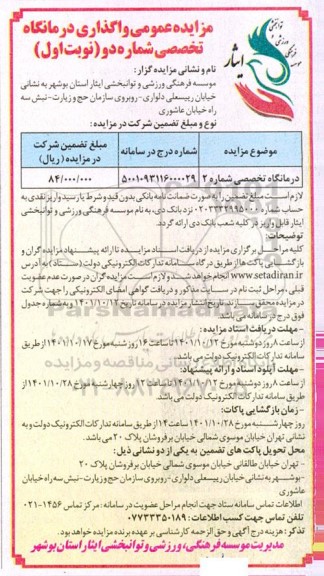 مزایده عمومی واگذاری درمانگاه
تخصصی شماره دو (نوبت اول)
ایثار
نام و نشانی مزایده گزار:
موسسه فرهنگی ورزشی و توانبخشی ایثار استان بوشهر به نشانی
خیابان رییسعلی دلواری-روبروی سازمان حج و زیارت-نبش سه
راه خیابان عاشوری
نوع و مبلغ تضمین شرکت در مزایده:
موضوع مزایده
شماره درج در سامانه
مبلغ تضمین شرکت در مزایده (ریال)
درمانگاه تخصصی شماره ۲
۵۰۰۱۰۹۳۱۱۶۰۰۰۰۲۹
۸۴/۰۰۰/۰۰۰
لازم است مبلغ تضمین را به صورت ضمانت نامه بانکی بدون قید و شرط یا رسید واریز نقدی به
حساب شماره ۰۲۰۳۳۳۲۱۹۵۰۰۰ نزد بانک دی، به نام موسسه فرهنگی ورزشی و توانبخشی
ایثار قابل واریز در کلیه شعب بانک دی ارائه گردد.
توضیحات:
کلیه مراحل برگزاری مزایده از دریافت اسناد مزایده تا ارائه پیشنهاد مزایده گران و
بازگشایی پاکت ها از طریق درگاه سامانه تدارکات الکترونیکی دولت (ستاد) به آدرس
www.setadiran.ir انجام خواهد شد و لازم است مزایده گران در صورت عدم عضویت
قبلی، مراحل ثبت نام در سایت مذکور و دریافت گواهی امضای الکترونیکی را جهت شرکت
در مزایده محقق سازند. تاریخ انتشار مزایده در سامانه تاریخ ۱۴۰۱/۱۰/۱۲ و به شماره جدول
فوق درج در سامانه می باشد.
- مهلت دریافت اسناد مزایده:
از ساعت ۸ روز دوشنبه مورخ ۱۴۰۱/۱۰/۱۲ تا ساعت ۱۴ روز شنبه مورخ ۱۴۰۱/۱۰/۱۷ از طریق
سامانه تدارکات الکترونیک دولت می باشد.
- مهلت آپلود اسناد و ارائه پیشنهاد:
از ساعت ۸ روز دوشنبه مورخ ۱۴۰۱/۱۰/۱۲ تا ساعت ۱۲ روز چهارشنبه مورخ ۱۴۰۱/۱۰/۲۸ از
طریق سامانه تدارکات الکترونیک دولت می باشد.
- زمان بازگشایی پاکات:
روز چهارشنبه مورخ ۱۴۰۱/۱۰/۲۸ از طریق سامانه تدارکات الکترونیک دولت و به
نشانی تهران خیابان موسوی شمالی خیابان برفروشان پلاک ۲۰ می باشد.
محل تحویل پاکت های تضمین به یکی از دو نشانی ذیل:
- تهران خیابان طالقانی خیابان موسوی شمالی خیابان برفروشان پلاک ۲۰
- بوشهر به نشانی خیابان رییسعلی دلواری-روبروی سازمان حج و زیارت-نبش سه راه خیابان
عاشوری
اطلاعات تماس سامانه ستاد جهت انجام مراحل عضویت در سامانه: مرکز تماس ۱۴۵۶-۰۲۱
تلفن تماس جهت کسب اطلاعات: ۰۷۷۳۳۳۵۰۱۸۹
تذکر: هزینه درج آگهی و حق الزحمه کارشناسی بر عهده برنده مزایده خواهد بود.
مدیریت موسسه فرهنگی، ورزشی و توانبخشی ایثار استان بوشهر